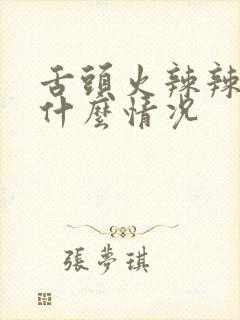 舌頭火辣辣
什麼情況
張夢琪